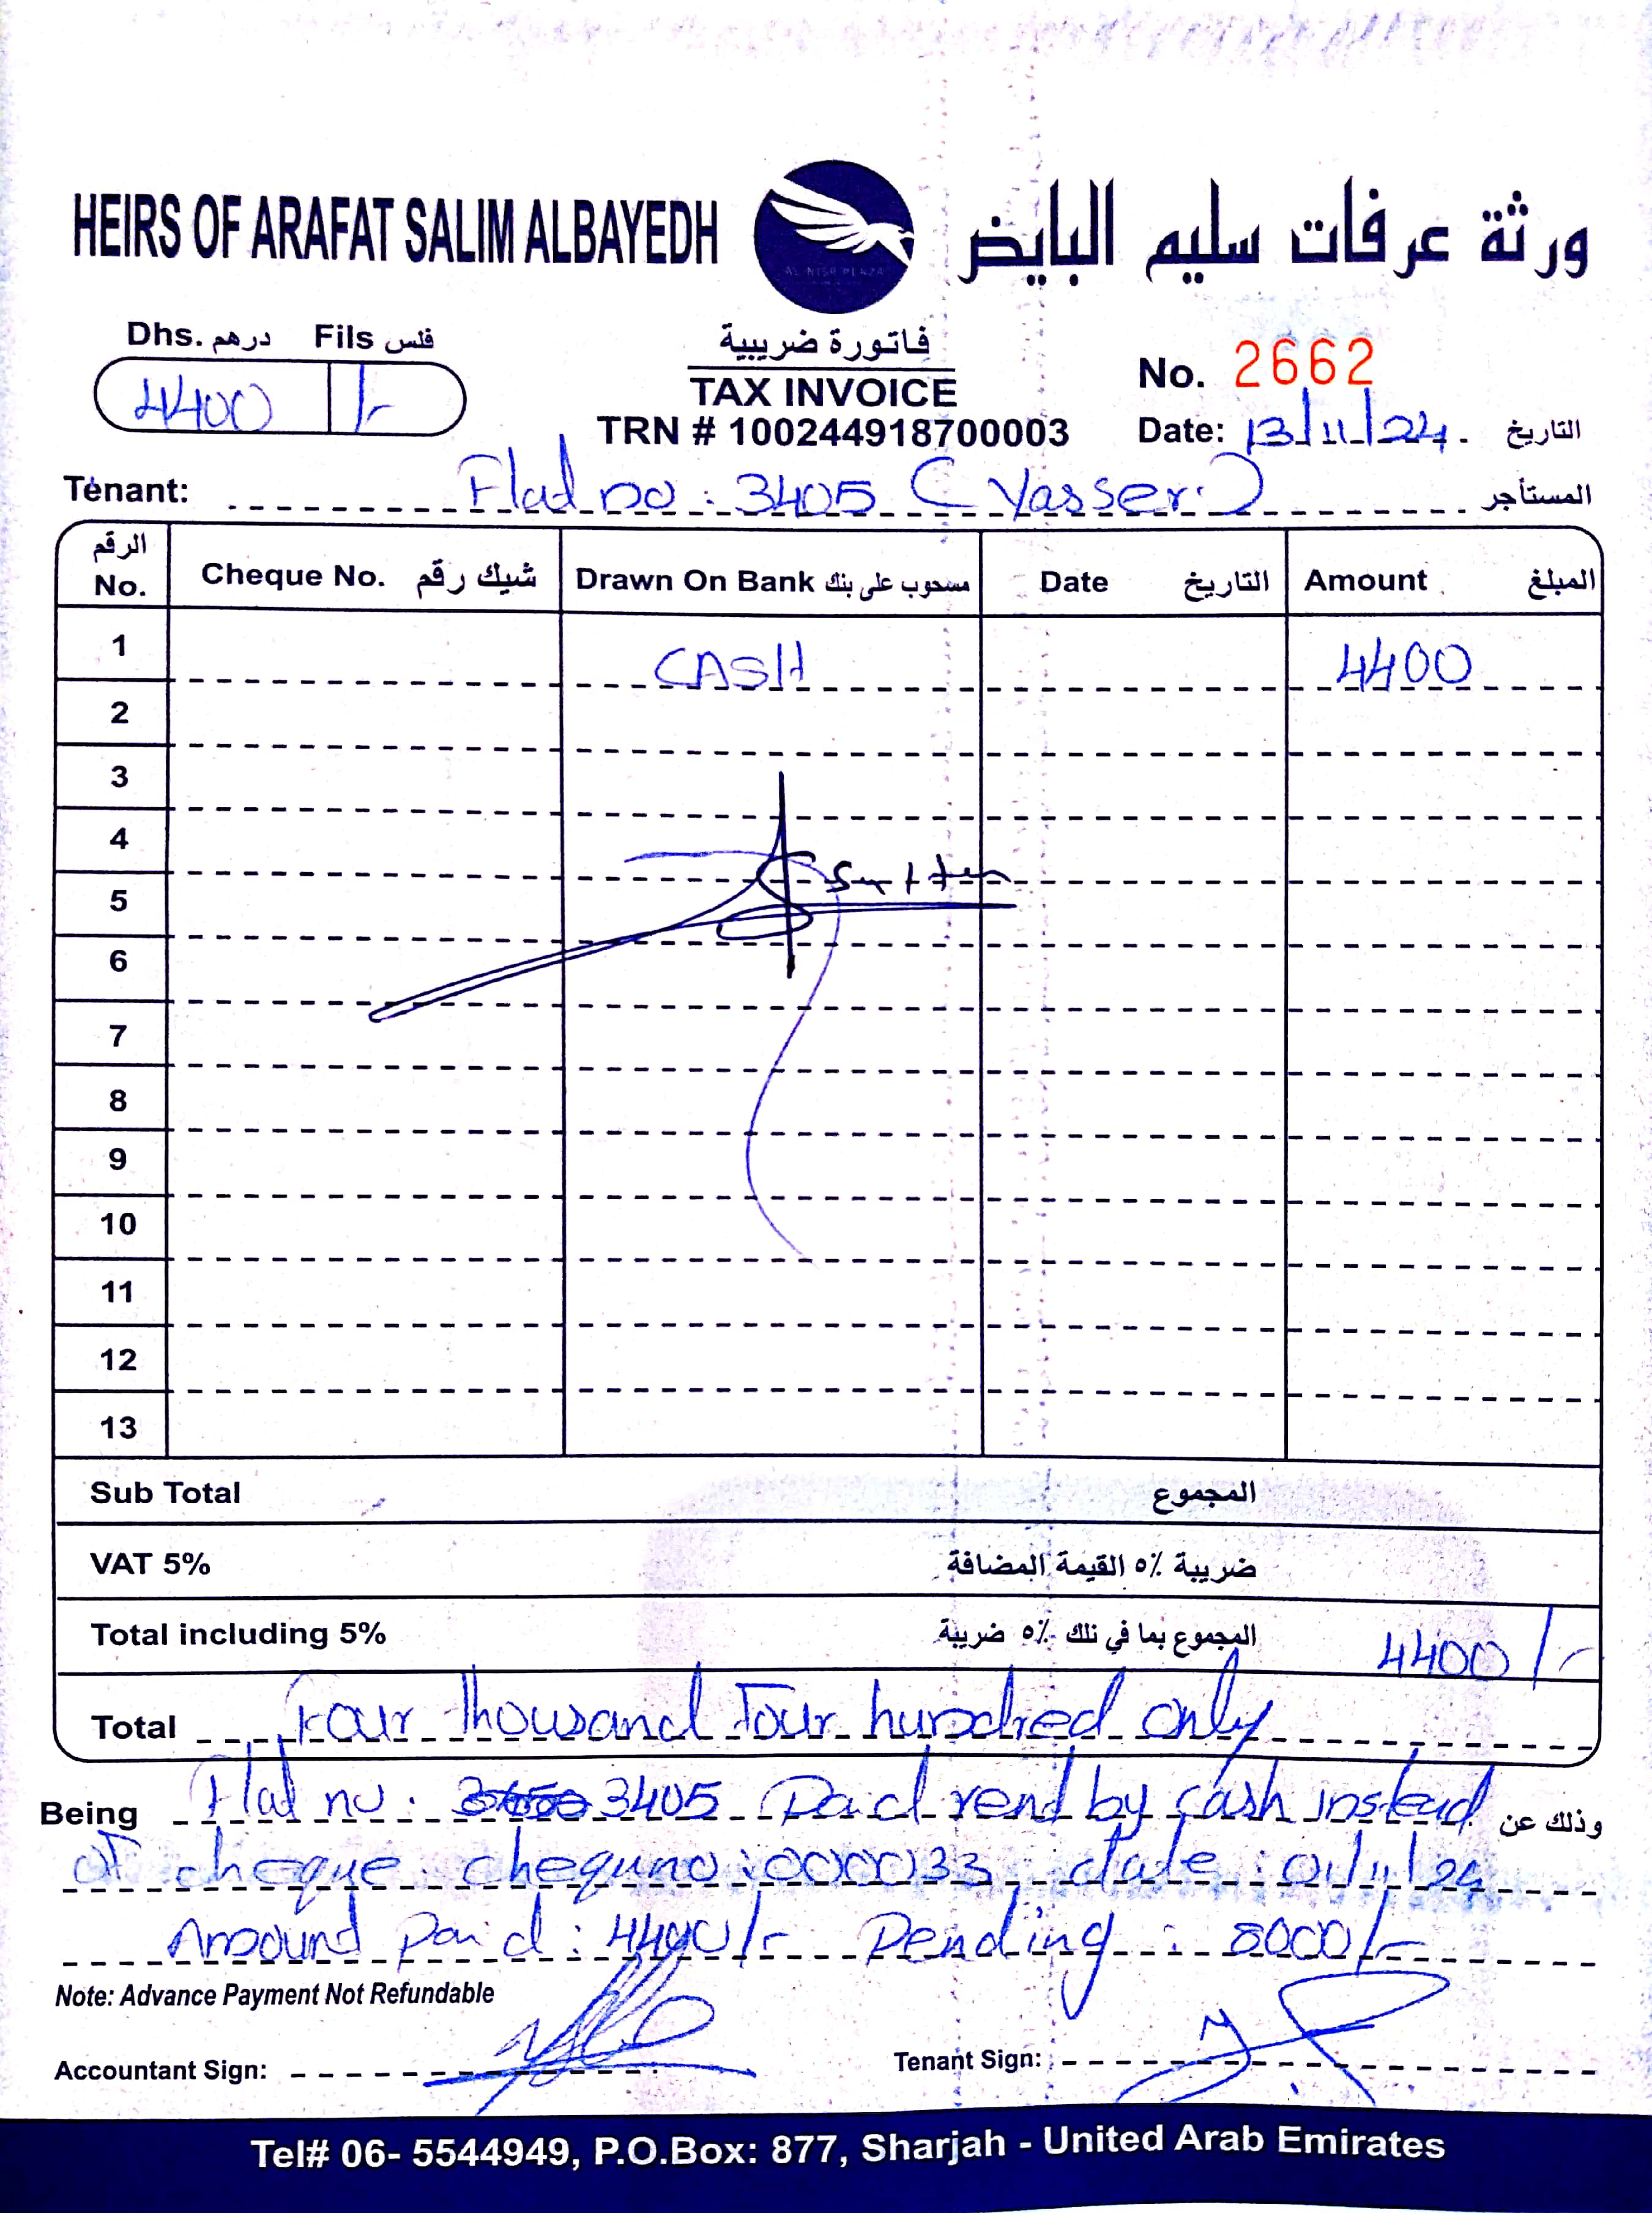 HEIRS OF ARAFAT SALIM ALBAYEDH
ورثة عرفات سليم البايض
AL NISR PLAZA
Dhs. درهم Fils فلس
4400 /-
فاتورة ضريبية
TAX INVOICE
TRN # 100244918700003
No. 2662
Date: 13/11/24. التاريخ
Tenant: Flat no : 3405 (Yasser) المستأجر
الرقم No. Cheque No. شيك رقم Drawn On Bank مسحوب على بنك Date التاريخ Amount المبلغ
1 CASH 4400
2
3
4
5
6
7
8
9
10
11
12
13
Sub Total المجموع
VAT 5% ضريبة ٥٪ القيمة المضافة
Total including 5% المجموع بما في ذلك ٥٪ ضريبة 4400/-
Total Four thousand Four hundred only
Being Flat no. 3405 Paid rent by cash instead وذلك عن
of cheque. cheque no: 000033, date : 01/11/24
Amount paid : 4400/- Pending : 8000/-
Note: Advance Payment Not Refundable
Accountant Sign: Tenant Sign:
Tel# 06- 5544949, P.O.Box: 877, Sharjah - United Arab Emirates